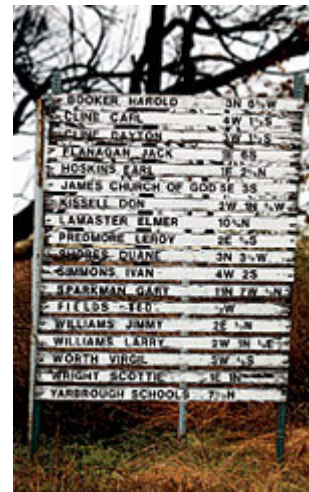 BOOKER HAROLD 3N 6½W
CLINE CARL 4W 1½S
CLINE DAYTON 3W 1½S
FLANAGAN JACK 6S
HOSKINS EARL 1E 2½N
JAMES CHURCH OF GOD 5E 3S
KISSELL DON 2W 1N ½W
LAMASTER ELMER 10½N
PREDMORE LEROY 2E ½S
SHORES DUANE 3N 3½W
SIMMONS IVAN 4W 2S
SPARKMAN GARY 11N 7W
FIELDS TED
WILLIAMS JIMMY 2E ½N
WILLIAMS LARRY 2W 1N ½E
WORTH VIRGIL 3W ½S
WRIGHT SCOTTIE 1E 1N
YARBROUGH SCHOOLS 7½N